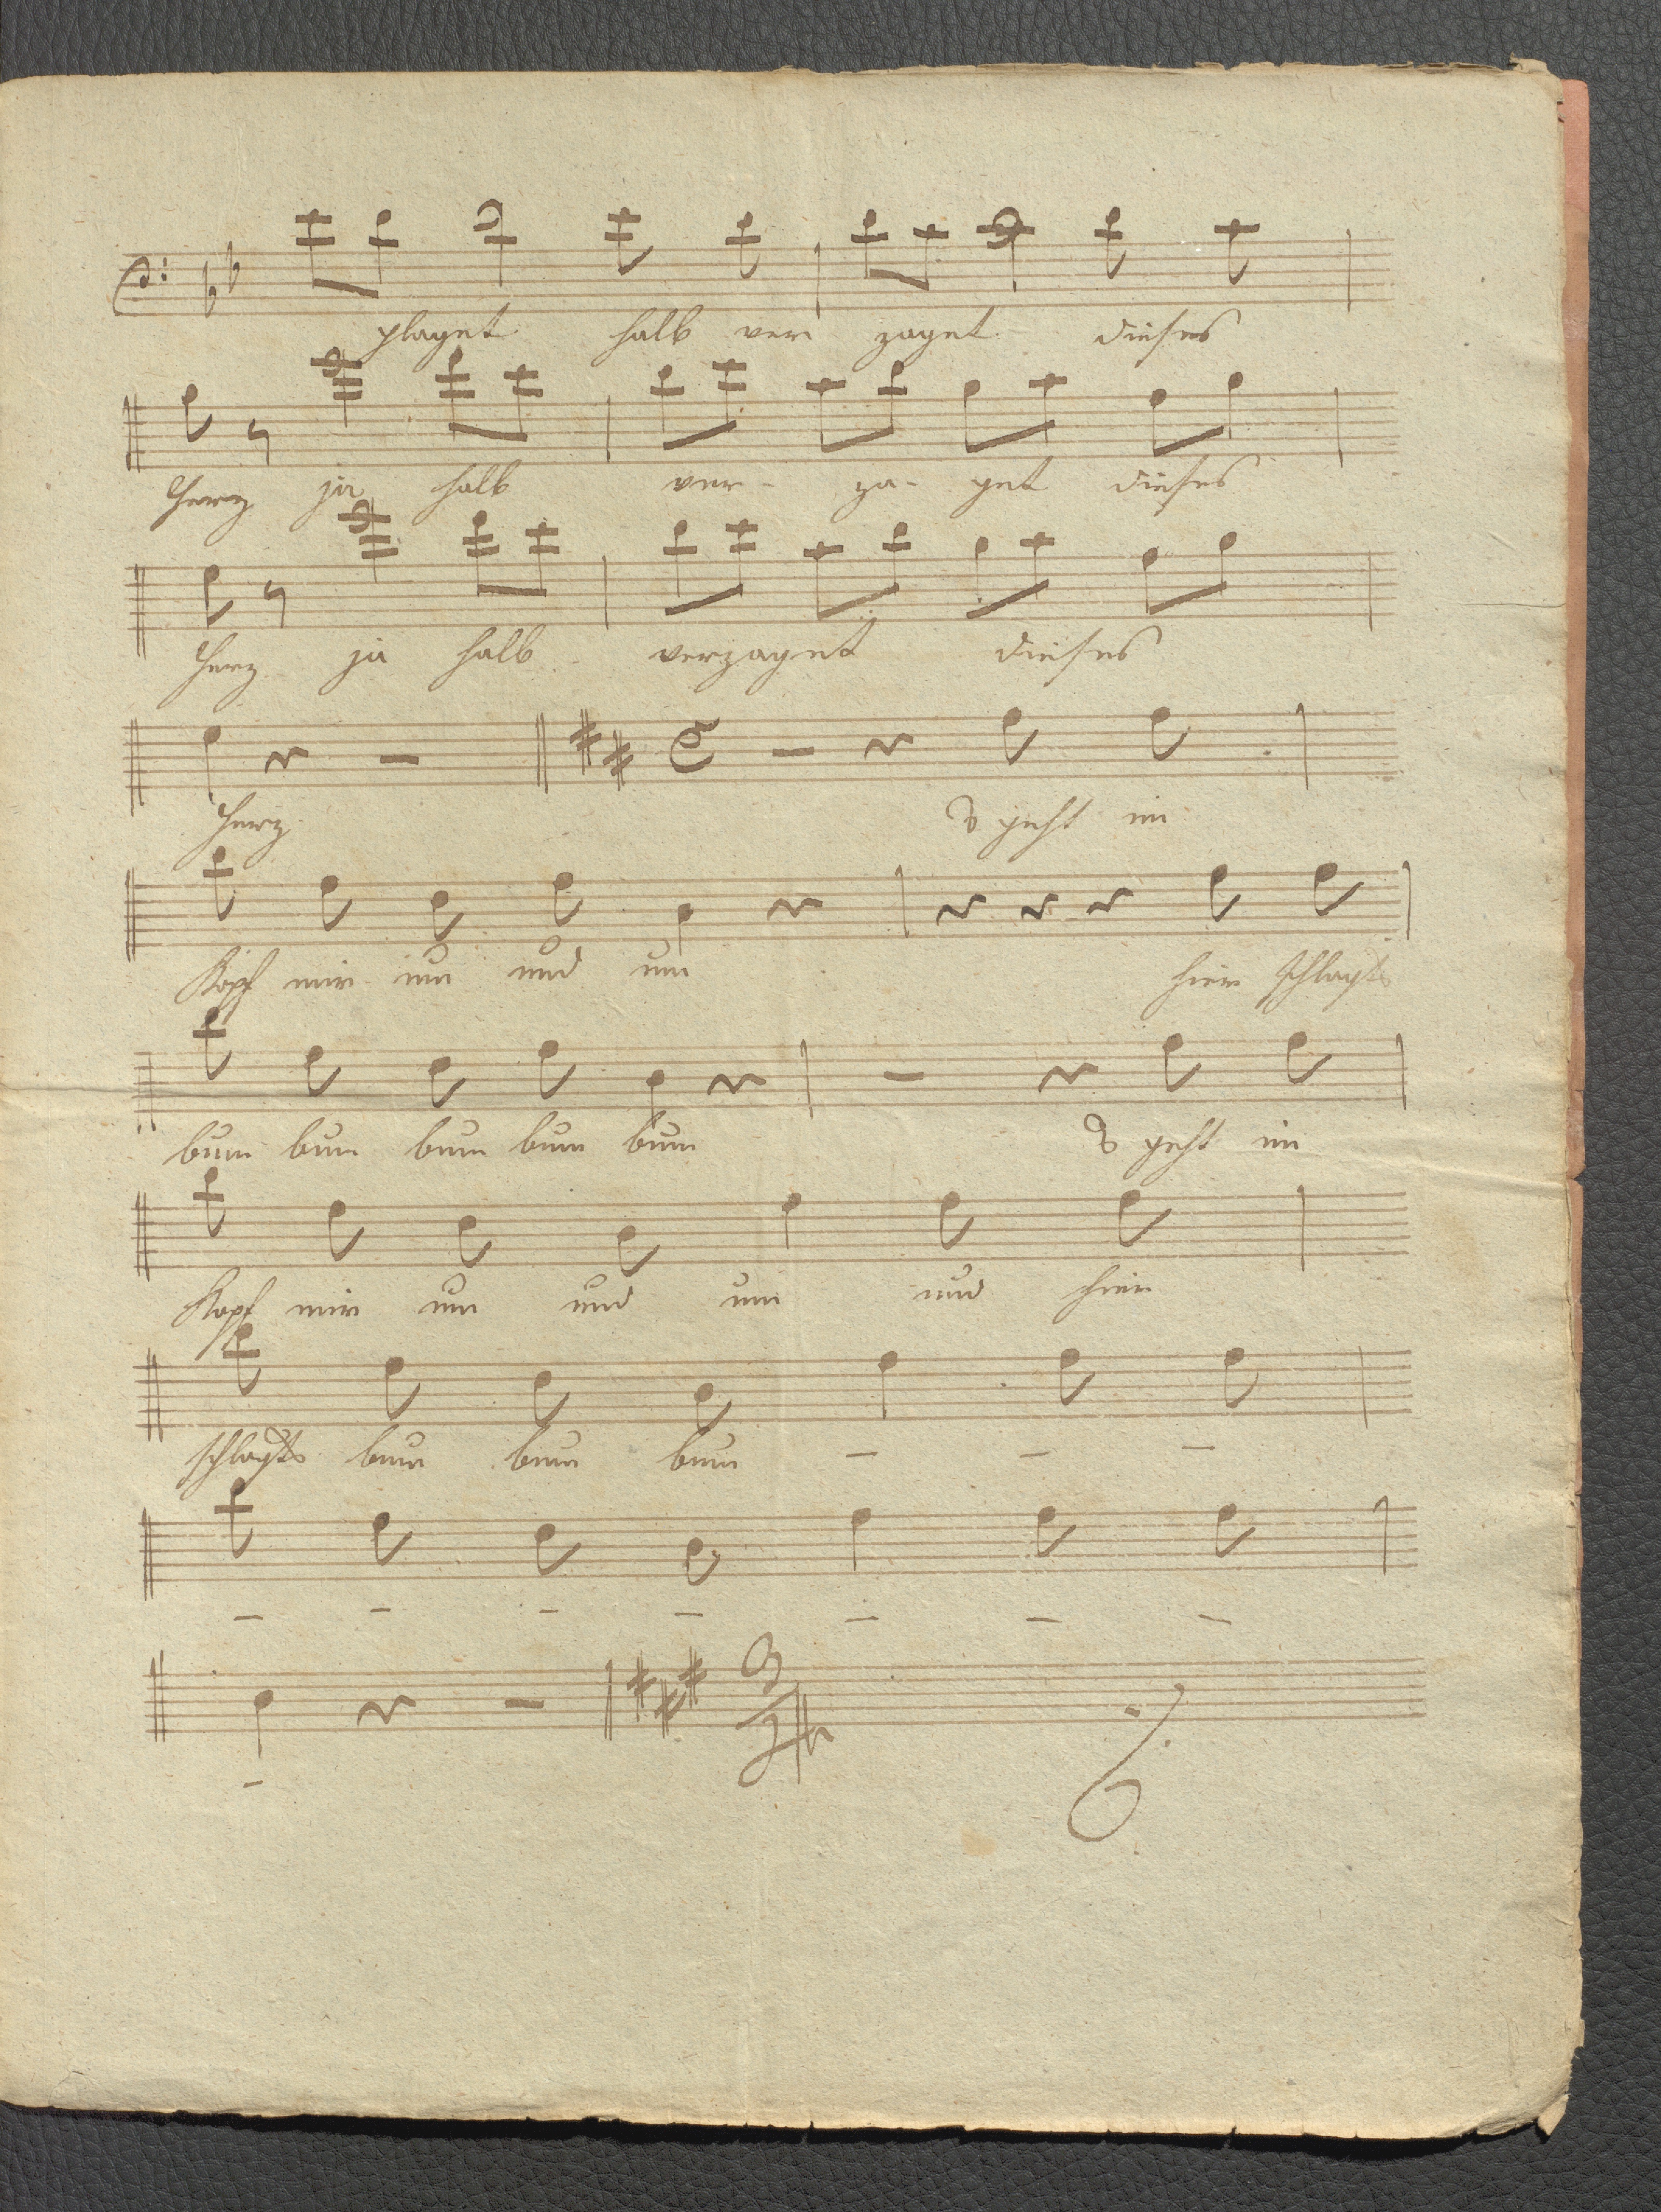 plaget halb ver zaget dieses
Herz ja halb ver- za- get dieses
Herz ja halb verzaget dieses
Herz s geht im
Kopf mir um und um hier schlagts
bum bum bum bum bum s geht im
Kopf mir um und um und hier
schlagts bum bum bum — — —
— — — — — — —
—